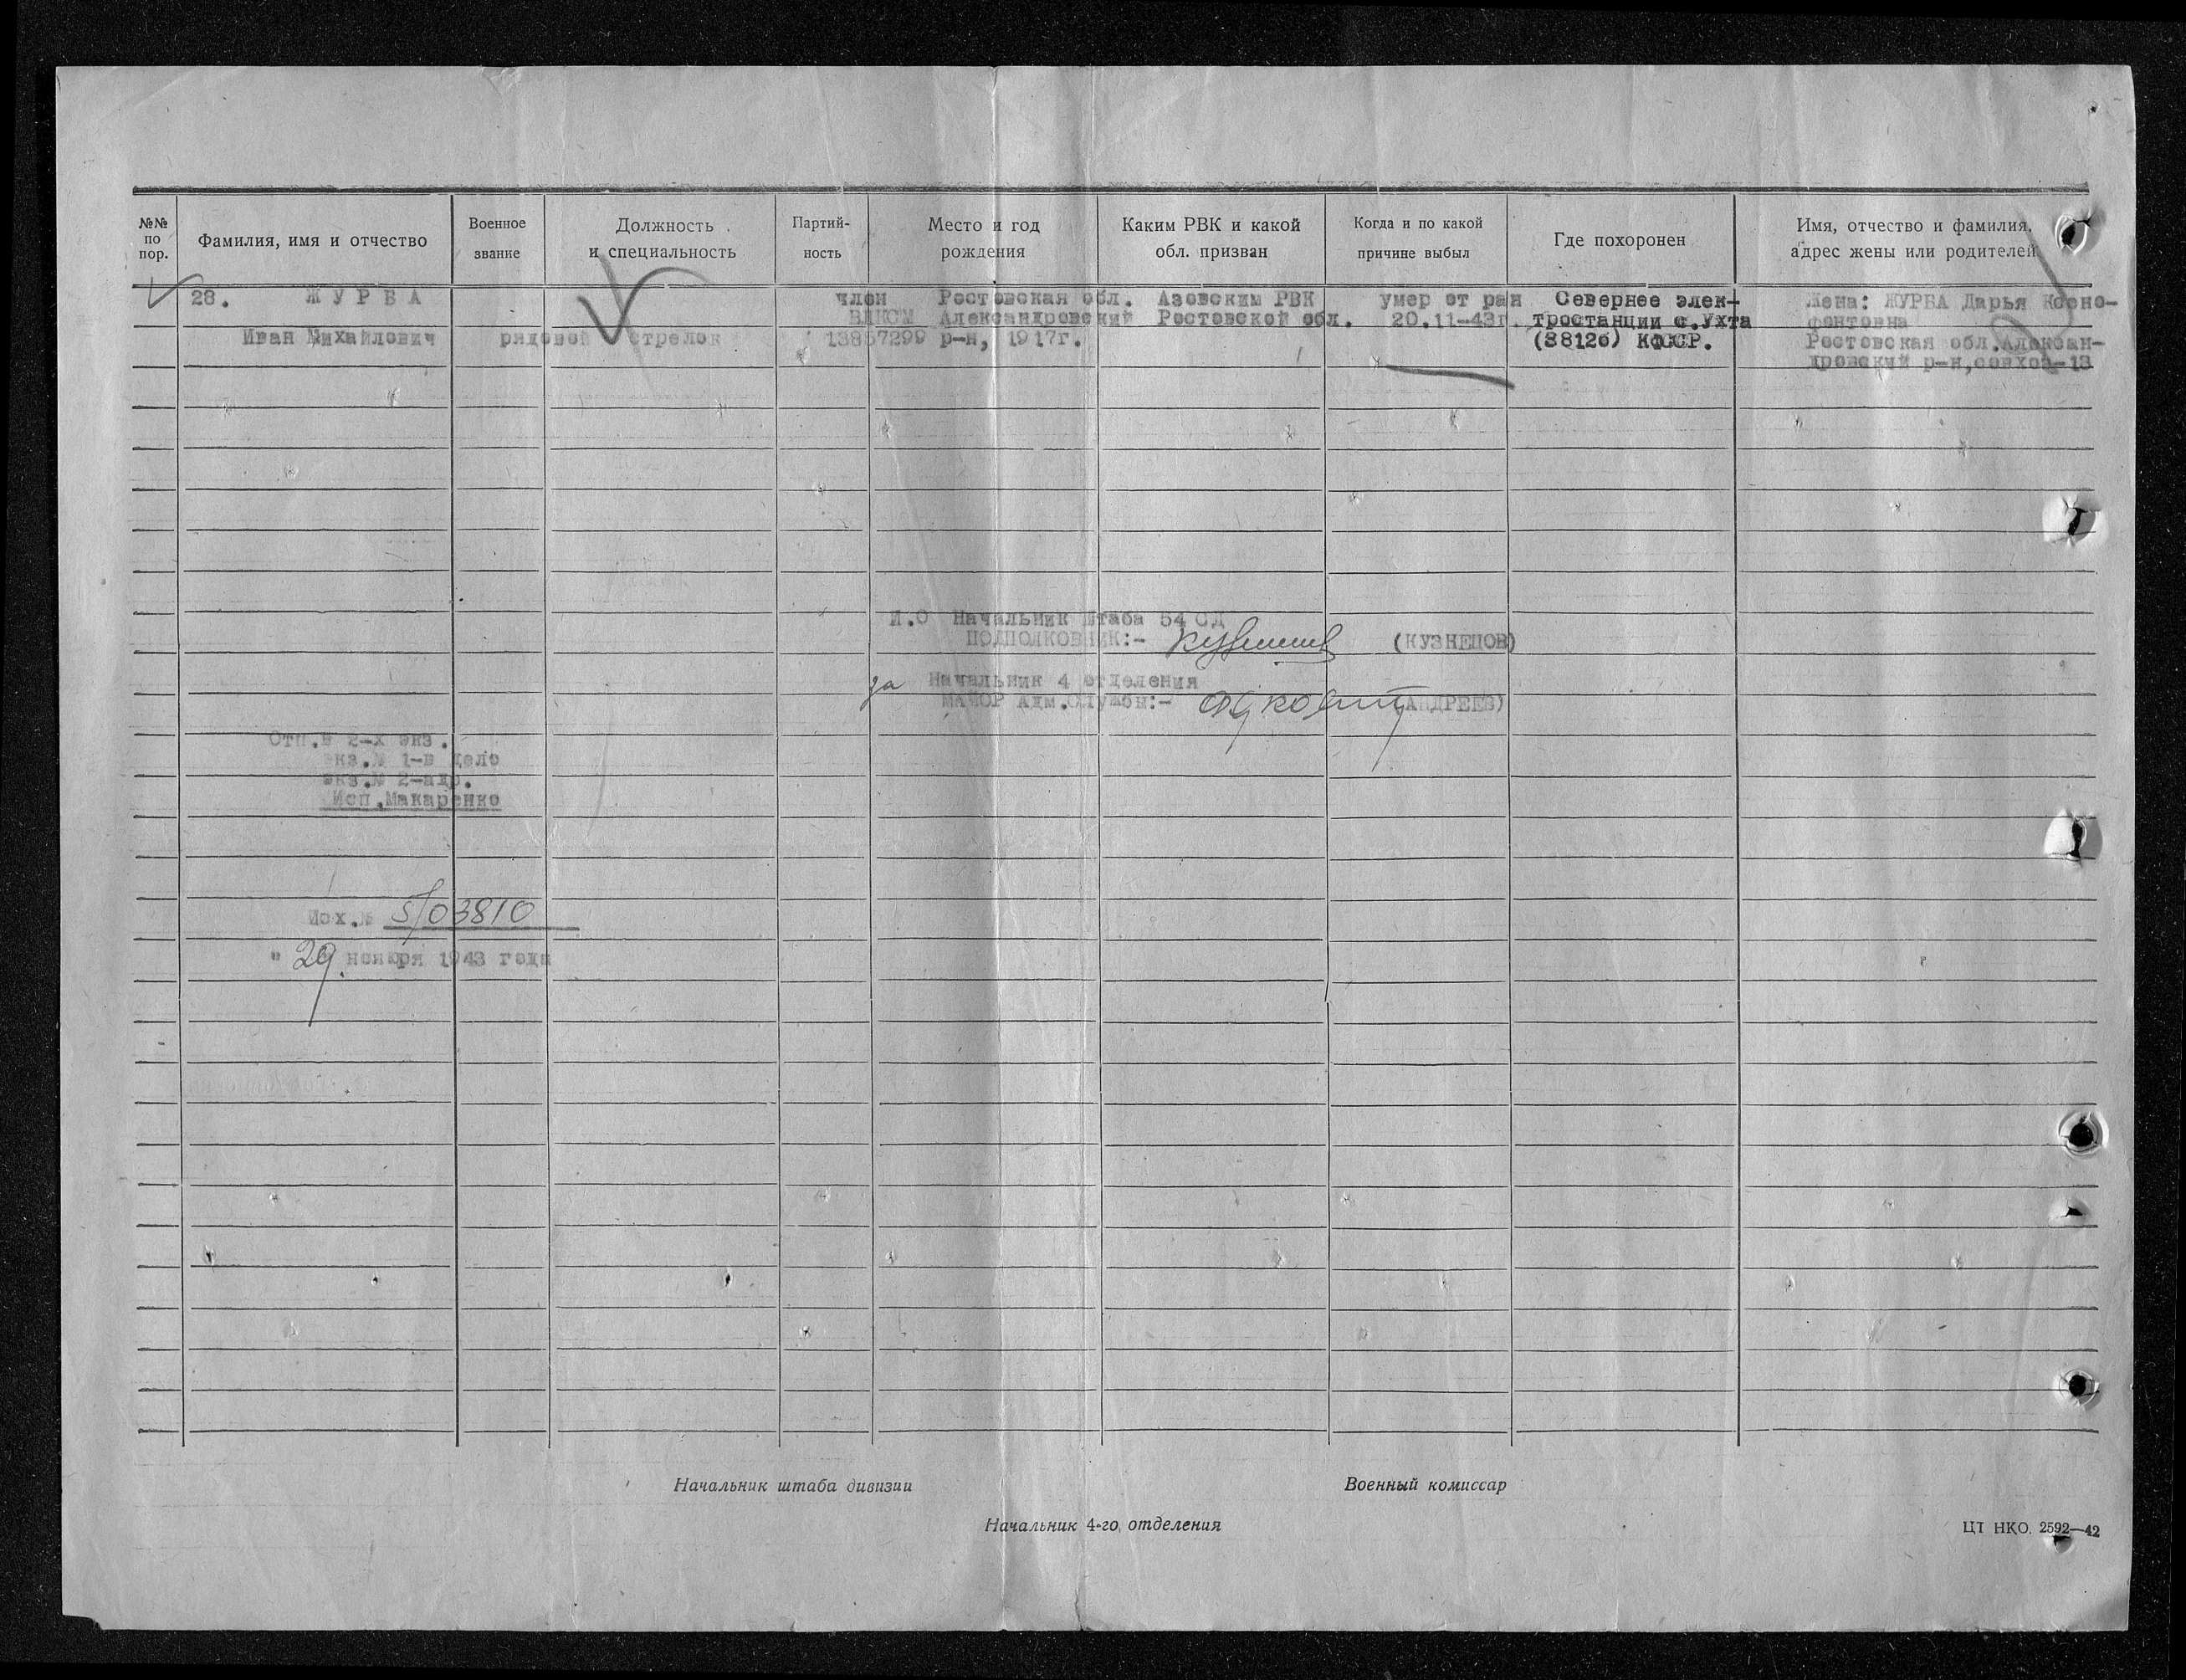 №№ по пор.
Фамилия, имя и отчество
Военное звание
Должность и специальность
Партий-ность
Место и год рождения
Каким РВК и какой обл. призван
Когда и по какой причине выбыл
Где похоронен
Имя, отчество и фамилия, адрес жены или родителей
28. ЖУРБА
Иван Михайлович
рядовой
стрелок
член
ВЛКСМ
13857299
Ростовская обл.
Александровский
р-н, 1917г.
Азовским РВК
Ростовской обл.
умер от ран
20.11-43г.
Севернее элек-
тростанции с.Ухта
(3812б) КФССР.
Жена: ЖУРБА Дарья Ксено-
фонтовна
Ростовская обл.Алексан-
дровский р-н,совхоз-13
И.О Начальник Штаба 54 СД
ПОДПОЛКОВНИК:- (КУЗНЕЦОВ)
за Начальник 4 отделения
МАЙОР Адм.службы:- (АНДРЕЕВ)
Отп.в 2-х экз.
экз.№ 1-в дело
экз.№ 2-адр.
Исп.Макаренко
Исх.№ 5/03810
" 29. ноября 1943 года
Начальник штаба дивизии
Военный комиссар
Начальник 4-го отделения
ЦТ НКО. 2592—42